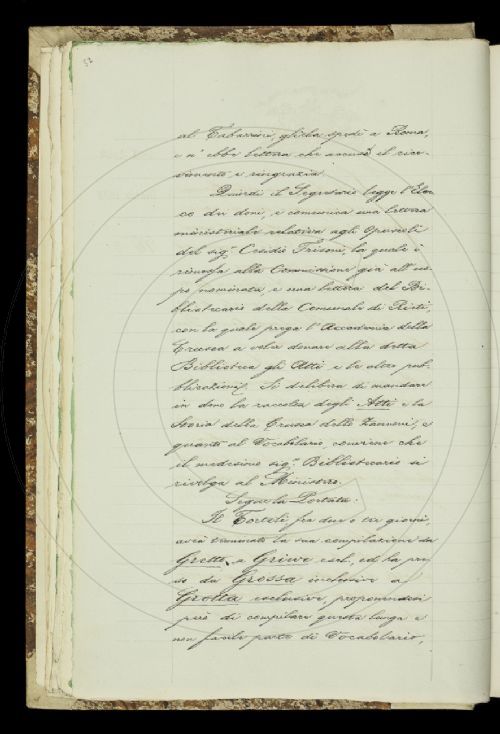 al Tabarrini, gliela spedì a Roma,
e n'ebbe lettera che accusò il rice-
vimento, e ringrazia.
Quindi il Segretario legge l'Elen
co dei doni, e comunica una lettera
ministeriale relativa agli Opuscoli
del sig.r Cesidio la quale è
rimessa alla Commissione già all'uo
po nominata, e una lettera del Bi-
bliotecario della Comunale di Rieti,
con la quale prega l'Accademia della
Crusca a voler donare alla detta
Biblioteca gli Atti e le altre pub-
blicazioni. Si delibera di mandare
in dono la raccolta degli Atti e la
Storia della Crusca dello Zannoni; e
quanto al Vocabolario, conviene che
il medesimo sig.r Bibliotecario si
rivolga al Ministero.
Segue la Portata.
Il Tortoli fra due o tre giorni,
avrà terminato la sua compilazione da
Gretto, a Griwe escl. ed ha pre
so da Grossa inclusive a
Grotta esclusive, proponendosi
però di compilare questa lunga e
non facile parte di Vocabolario,